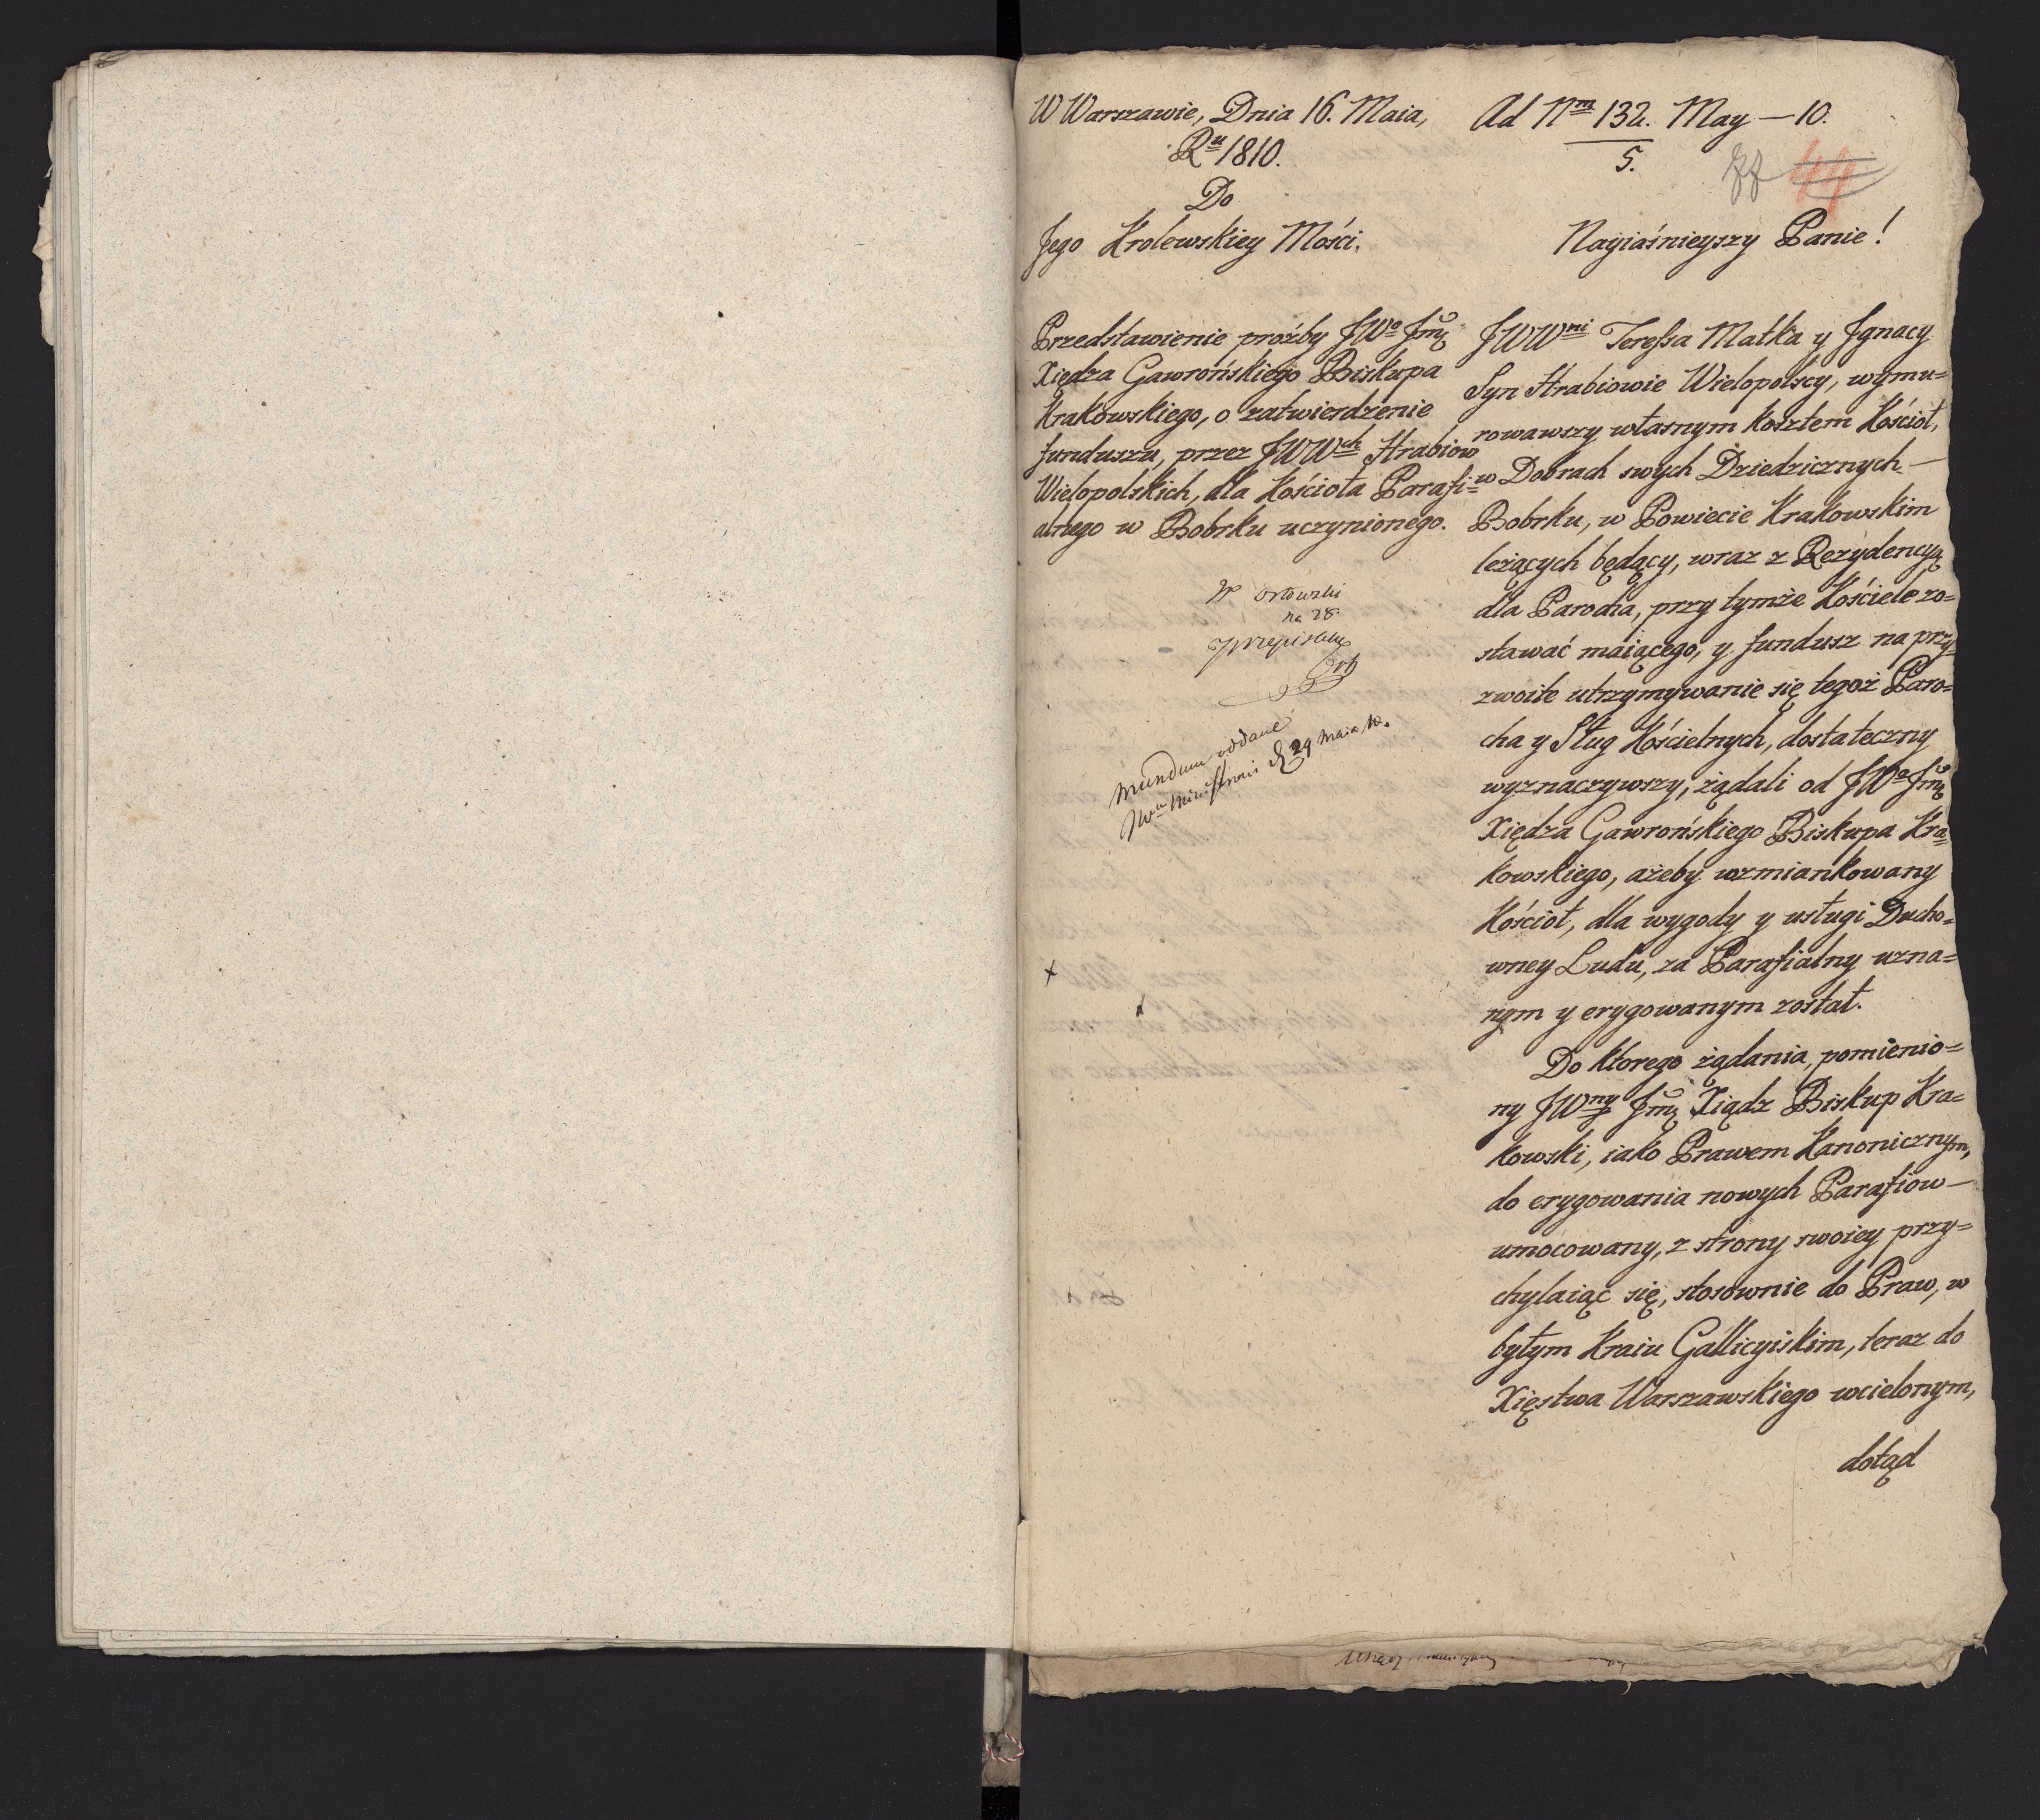 W Warszawie, Dnia 16. Maia,
Ru 1810.
Do
Jego Krolewskiey Mości.
Przedstawienie proźby JWo Jmę
Xiędza Gawrońskiego Biskupa
Krakowskiego, o zatwierdzenie
funduszu, przez JWWch Hrabiow
Wielopolskich, dla Kościoła Parafi=
alnego w Bobrku uczynionego.
W Orłowski
na 28
przepisały
Mundum oddane
JWu Ministrowi d 29 Maia 10.
Ad Nm 132. May — 10.
5.
44
Nayiaśnieyszy Panie!
JWWni Teressa Matka y Jgnacy
Syn Hrabiowie Wielopolscy, wymu=
rowawszy własnym kosztem Kościoł,
w Dobrach swych Dziedzicznych —
Bobrku, w Powiecie Krakowskim
leżących będący, wraz z Rezydencyą
dla Parocha, przy tymże Kościele zo=
stawać maiącego, y fundusz na przy=
zwoite utrzymywanie się tegoż Paro=
cha y Sług Kościelnych, dostateczny
wyznaczywszy, żądali od JWo Jmę
Xiędza Gawrońskiego Biskupa Kra=
kowskiego, ażeby wzmiankowany
Kościoł, dla wygody y usługi Ducho=
wney Ludu, za Parafialny uzna=
nym y erygowanym został.
Do ktorego żądania, pomienio=
ny JWny Jmę Xiądz Biskup Kra=
kowski, iako Prawem Kanonicznym,
do erygowania nowych Parafiow —
umocowany, z strony swoiey przy=
chylaiąc się, stosownie do Praw, w
byłym Kraiu Gallicyiskim, teraz do
Xięstwa Warszawskiego wcielonym,
dotąd